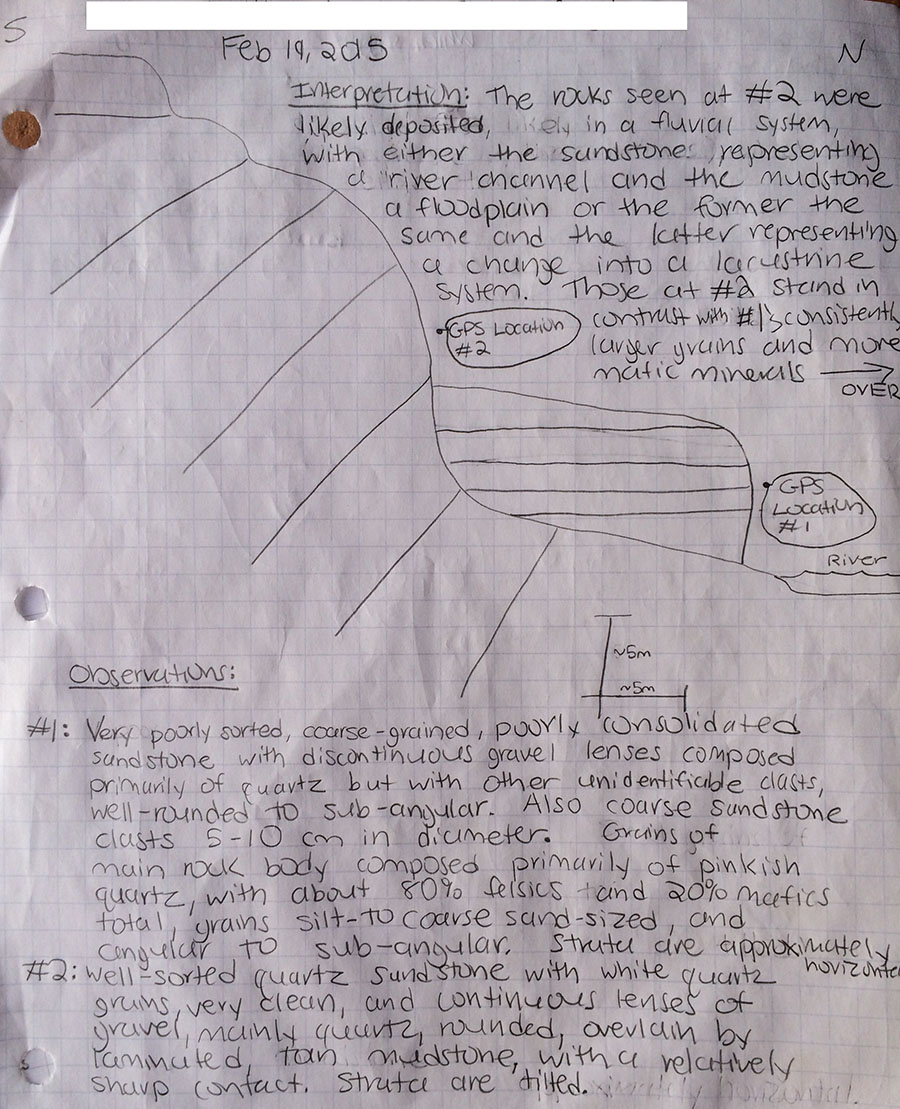 S
Feb 19, 2015
N
Interpretation: The rocks seen at #2 were
likely deposited, likely in a fluvial system,
with either the sandstone representing
a river channel and the mudstone
a floodplain or the former the
same and the latter representing
a change into a lacustrine
system. Those at #2 stand in
contrast with #1's consistently
larger grains and more
mafic minerals →
OVER
GPS Location
#2
GPS
Location
#1
River
~5m
~5m
Observations:
#1: Very poorly sorted, coarse-grained, poorly consolidated
sandstone with discontinuous gravel lenses composed
primarily of quartz but with other unidentifiable clasts,
well-rounded to sub-angular. Also coarse sandstone
clasts 5-10 cm in diameter. Grains of
main rock body composed primarily of pinkish
quartz, with about 80% felsics and 20% mafics
total, grains silt-to coarse sand-sized, and
angular to sub-angular. Strata are approximately
horizontal
#2: well-sorted quartz sandstone with white quartz
grains, very clean, and continuous lenses of
gravel, mainly quartz, rounded, overlain by
laminated, tan mudstone, with a relatively
sharp contact. Strata are tilted.